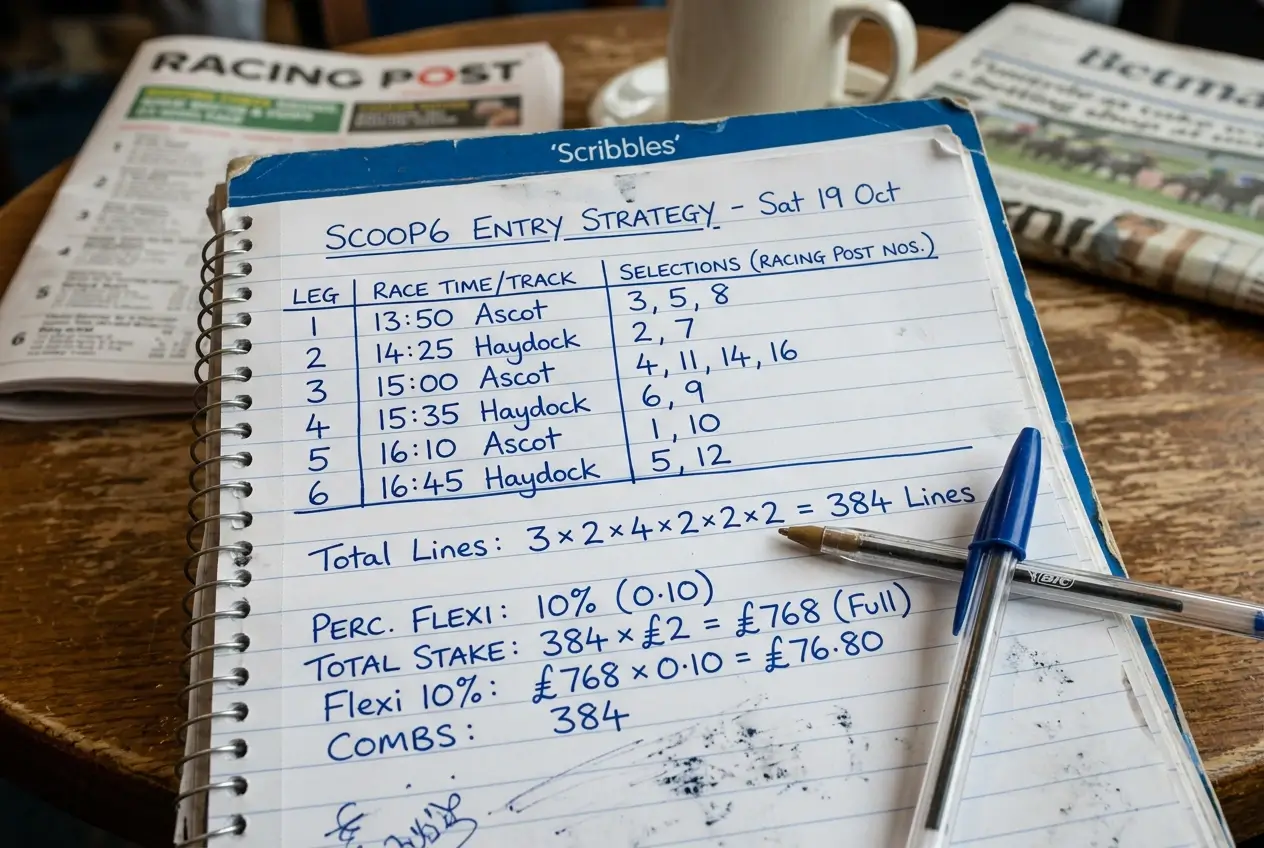 RACING POST
Betma
'Scribbles'
SCOOP6 ENTRY STRATEGY - Sat 19 Oct
LEG RACE TIME/TRACK SELECTIONS (RACING POST NOS.)
1 13:50 Ascot 3, 5, 8
2 14:25 Haydock 2, 7
3 15:00 Ascot 4, 11, 14, 16
4 15:35 Haydock 6, 9
5 16:10 Ascot 1, 10
6 16:45 Haydock 5, 12
Total Lines: 3×2×4×2×2×2 = 384 Lines
PERC. FLEXI: 10% (0.10)
TOTAL STAKE: 384 × £2 = £768 (Full)
Flexi 10%: £768 × 0.10 = £76.80
COMBS: 384
BIC